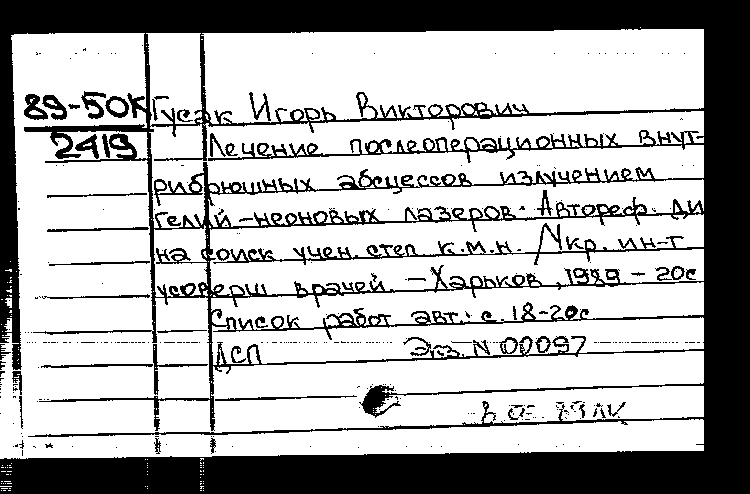 89-50К Гусак Игорь Викторович
2419 Лечение послеоперационных внут-
рибрюшных абсцессов излучением
гелий-неоновых лазеров. Автореф. ди
на соиск учен. степ к.м.н. /Укр. ин-т
усоверш врачей. - Харьков, 1989 - 20с
Список работ авт.: с. 18-20с
ДСП Экз. N 00097
89